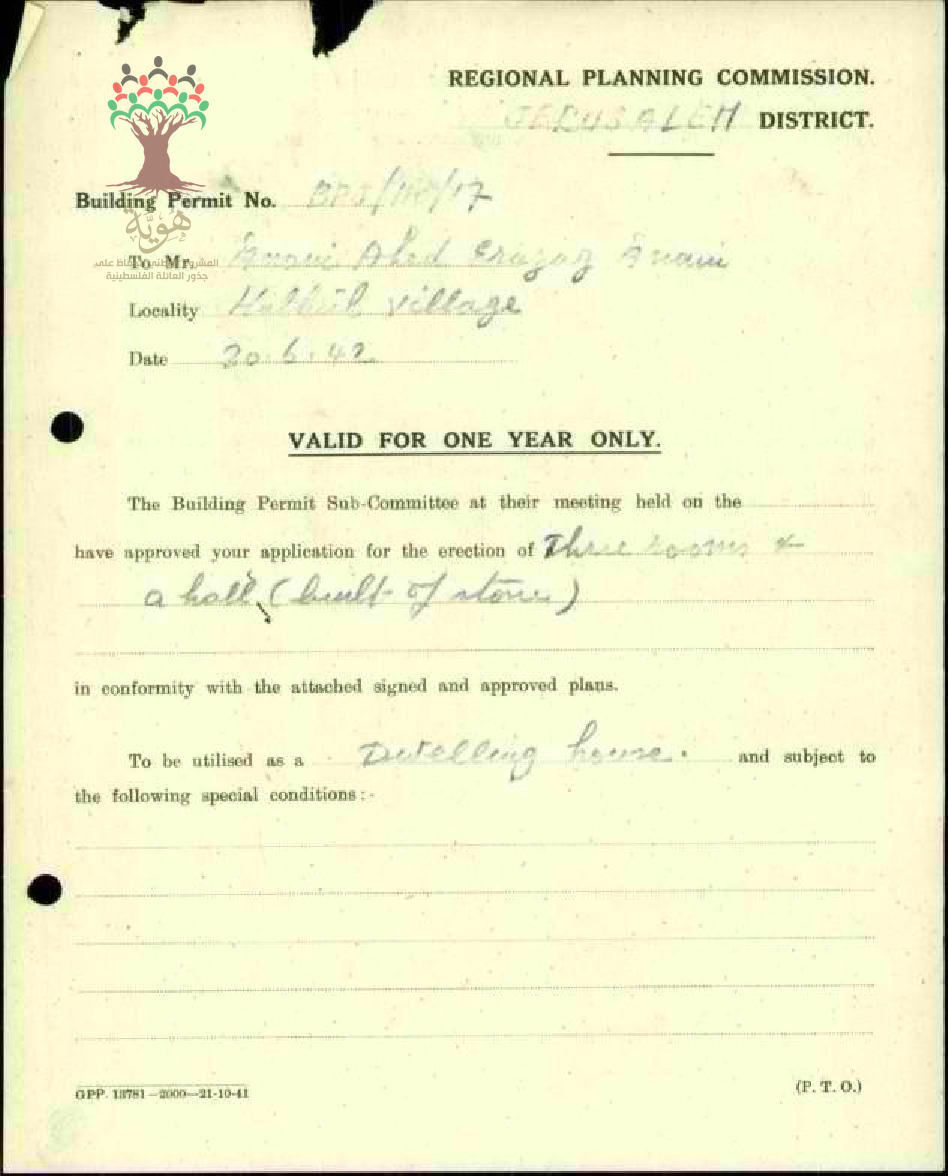 REGIONAL PLANNING COMMISSION.
JERUSALEM DISTRICT.
Building Permit No. BPJ/ /17
هويّة
المشروع الوطني للحفاظ على
جذور العائلة الفلسطينية
To Mr. Anani Abed Erazaq Anani
Locality Halhul village
Date 30.6.42
VALID FOR ONE YEAR ONLY.
The Building Permit Sub-Committee at their meeting held on the
have approved your application for the erection of Three rooms +
a hall (built of stone)
in conformity with the attached signed and approved plans.
To be utilised as a Dwelling house. and subject to
the following special conditions:-
GPP. 13781—2000—21-10-41
(P. T. O.)